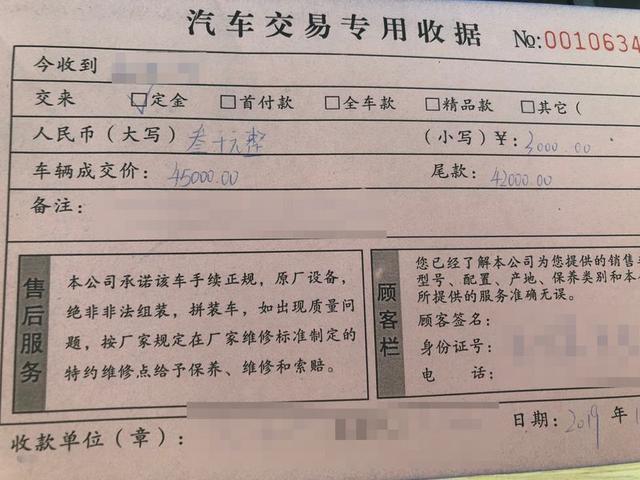 汽车交易专用收据 №:0010634
今收到
交来 □定金 □首付款 □全车款 □精品款 □其它(
人民币(大写) 叁千元整 (小写)¥: 3000.00
车辆成交价: 45000.00 尾款: 42000.00
备注:
售后服务
本公司承诺该车手续正规,原厂设备,
绝非非法组装,拼装车,如出现质量问
题,按厂家规定在厂家维修标准制定的
特约维修点给予保养、维修和索赔。
顾客栏
您已经了解本公司为您提供的销售
型号、配置、产地、保养类别和本
所提供的服务准确无误。
顾客签名:
身份证号:
电 话:
收款单位(章): 日期: 2019 年 1